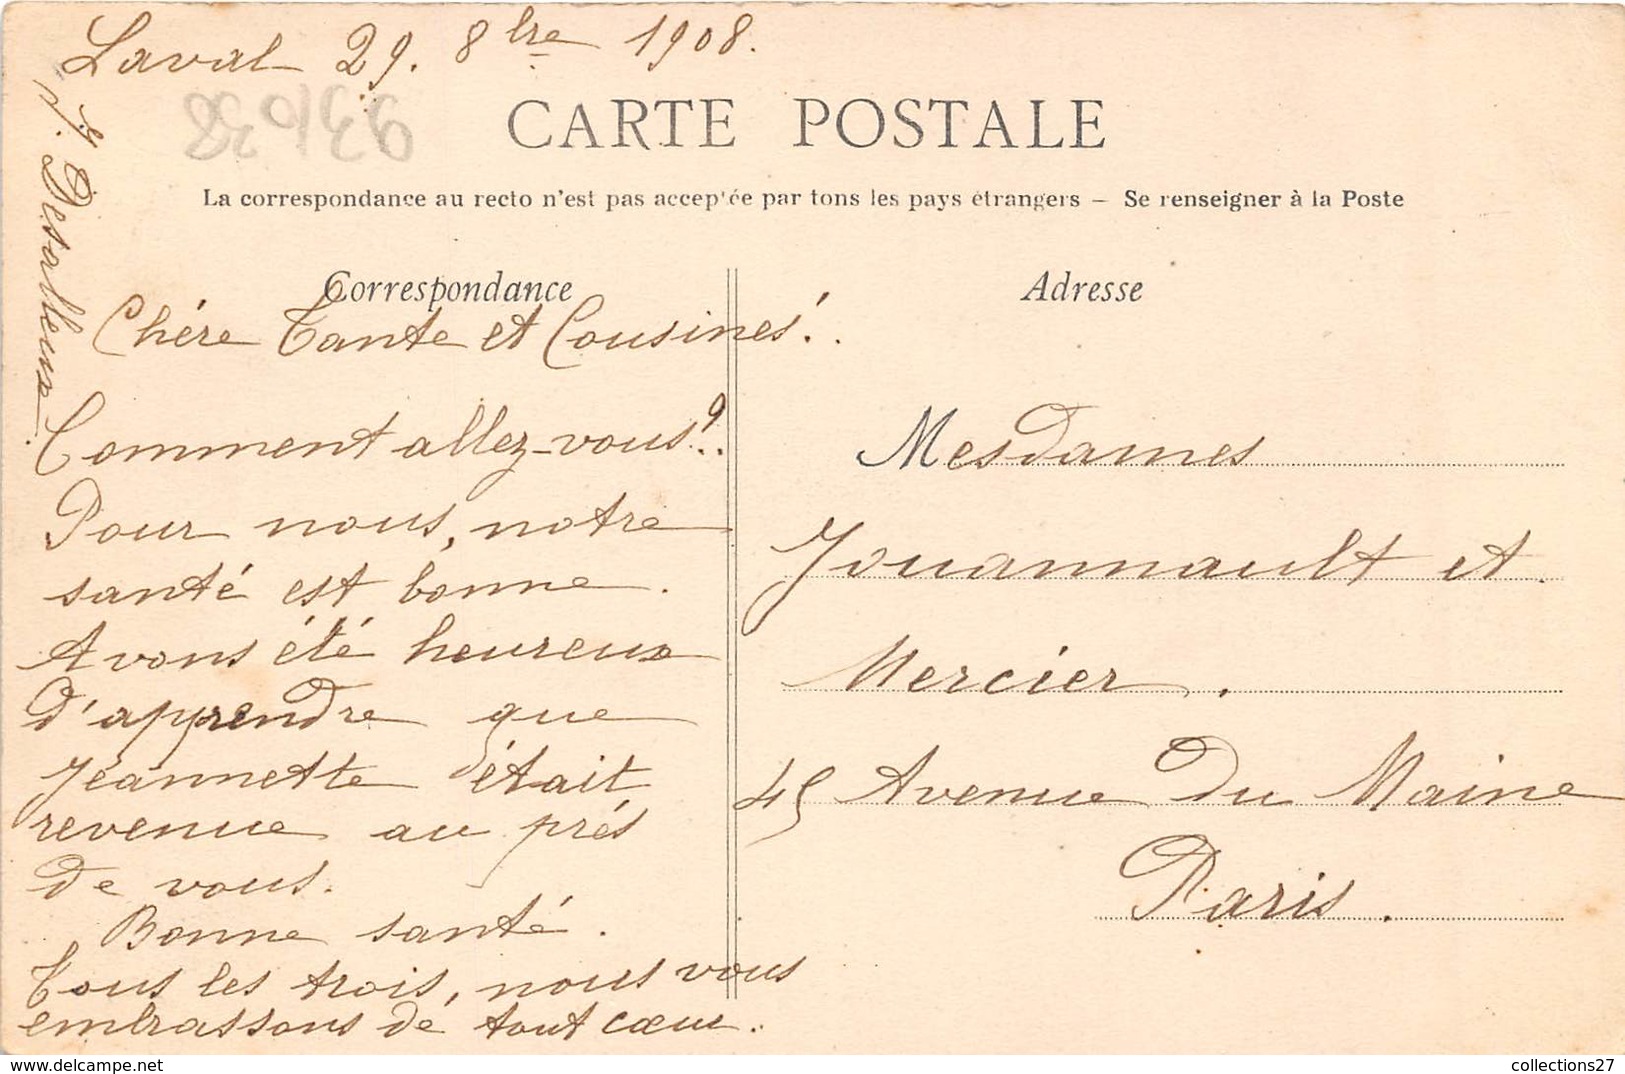 Laval 29. 8bre 1908.
CARTE POSTALE
La correspondance au recto n'est pas acceptée par tous les pays étrangers — Se renseigner à la Poste
Correspondance
Chére Tante et Cousines!..
Comment allez-vous?..
Pour nous, notre
santé est bonne.
Avons été heureux
d'apprendre que
Jeannette était
revenue au prés
de vous.
Bonne santé.
Tous les trois, nous vous
embrassons de tout cœur.
Desalleux
Adresse
Mesdames
Jouannault et
Mercier.
45 Avenue du Maine
Paris.
collections27